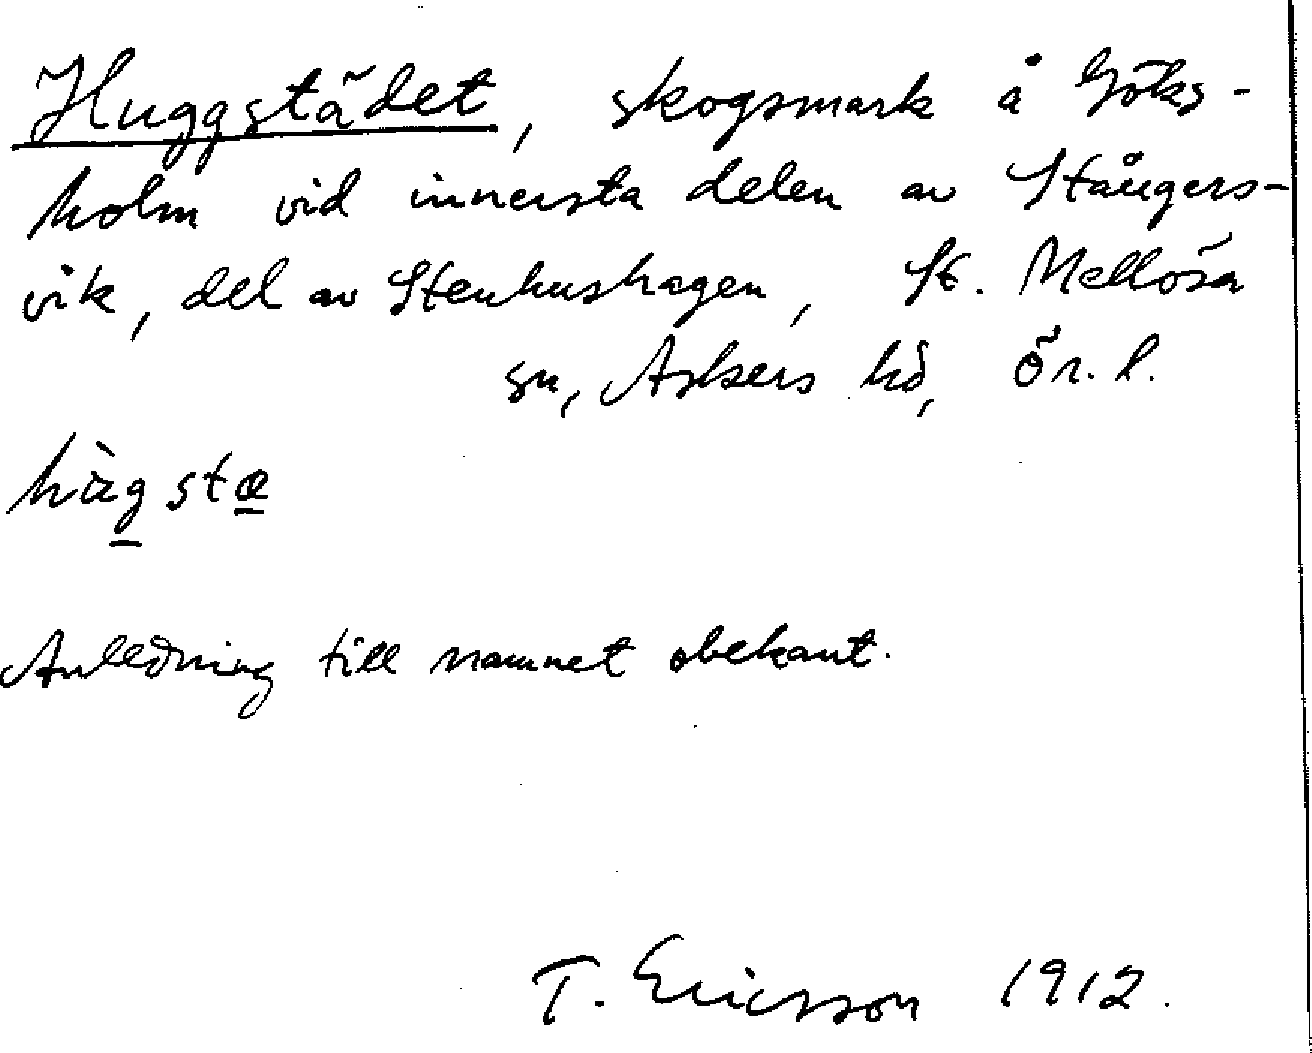 Huggstädet, skogsmark å Göks-
holm vid innersta delen av Stångers-
vik, del av Stenhushagen, St. Mellösa
sn, Askers hd, Ör. l.
hùgstæ
Anledning till namnet obekant.
T. Ericsson 1912.